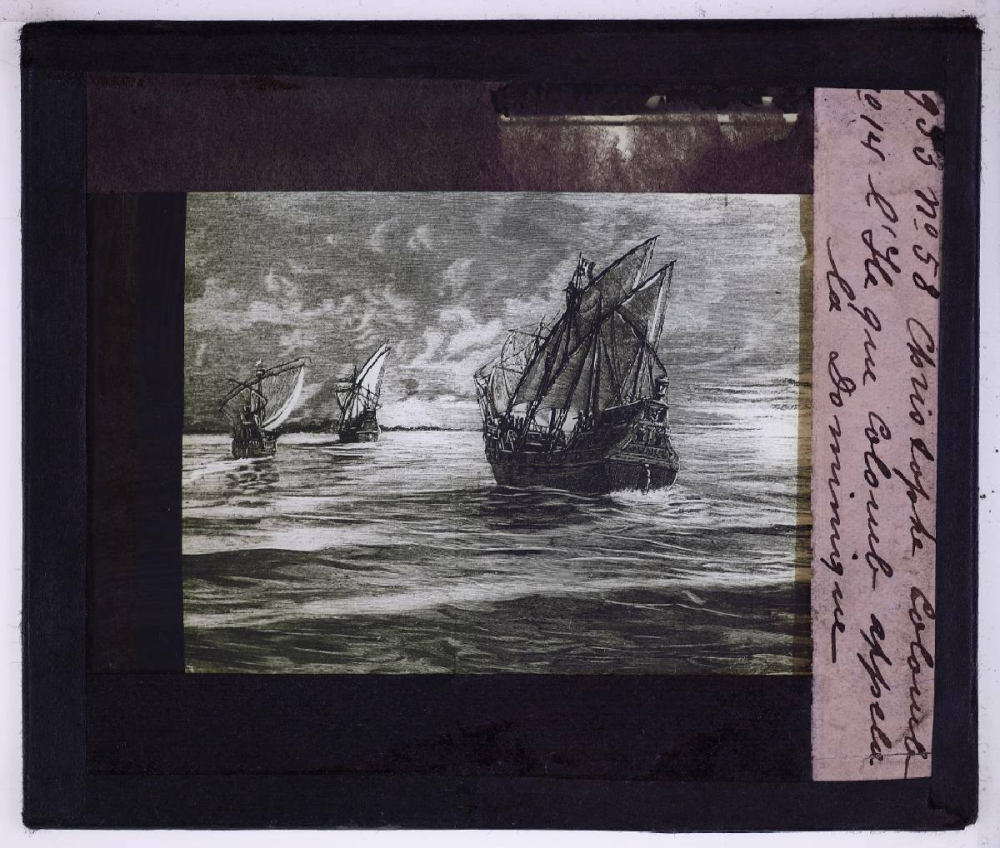 933 No 58 Christophe Colomb
no 14 l'Ile que Colomb appela
la Dominique